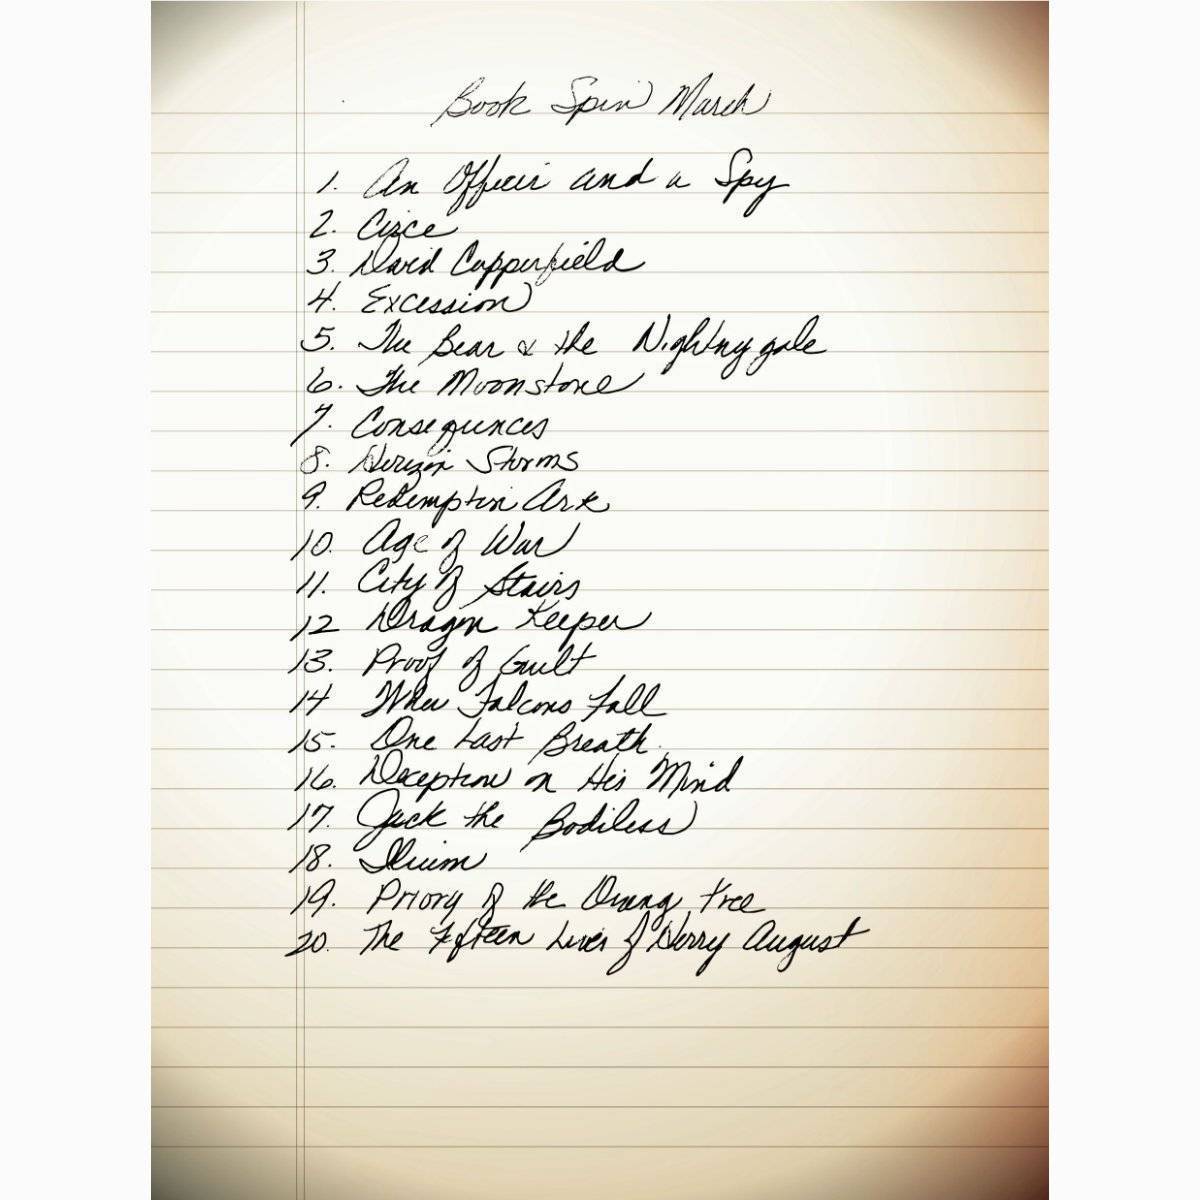 Book Spin March
1. An Officer and a Spy
2. Circe
3. David Copperfield
4. Excession
5. The Bear & the Nightnygale
6. The Moonstone
7. Consequences
8. Horizon Storms
9. Redemption Ark
10. Age of War
11. City of Stairs
12 Dragon Keeper
13. Proof of Guilt
14 When Falcons Fall
15. One Last Breath.
16. Deception on His Mind
17. Jack the Bodiless
18. Ilium
19. Priory of the Orang Tree
20. The Fifteen Lives of Harry August